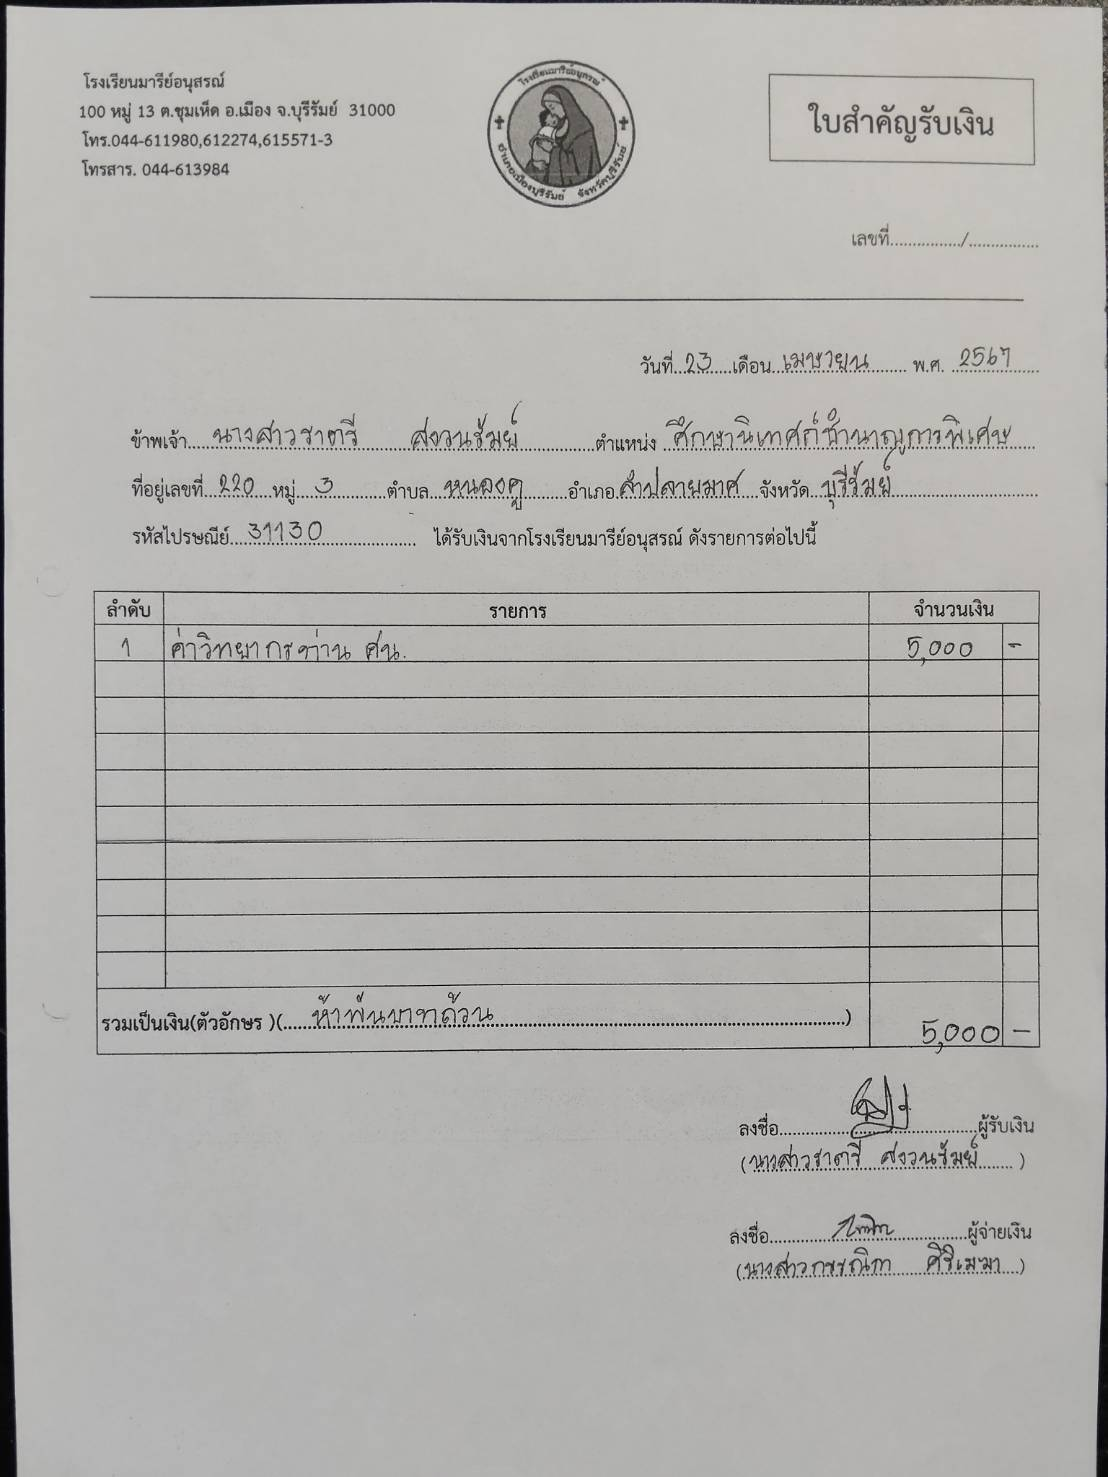 โรงเรียนมารีย์อนุสรณ์
100 หมู่ 13 ต.ชุมเห็ด อ.เมือง จ.บุรีรัมย์ 31000
โทร.044-611980,612274,615571-3
โทรสาร. 044-613984
โรงเรียนมารีย์อนุสรณ์
อำเภอเมืองบุรีรัมย์ จังหวัดบุรีรัมย์
ใบสำคัญรับเงิน
เลขที่................/................
วันที่ 23 เดือน เมษายน พ.ศ. 2567
ข้าพเจ้า นางสาวราตรี สงวนรัมย์ ตำแหน่ง ศึกษานิเทศก์ชำนาญการพิเศษ
ที่อยู่เลขที่ 220 หมู่ 3 ตำบล หนองคู อำเภอ ลำปลายมาศ จังหวัด บุรีรัมย์
รหัสไปรษณีย์ 31130 ได้รับเงินจากโรงเรียนมารีย์อนุสรณ์ ดังรายการต่อไปนี้
ลำดับ รายการ จำนวนเงิน
1 ค่าวิทยากรท่าน ศน. 5,000 -
รวมเป็นเงิน(ตัวอักษร )( ห้าพันบาทถ้วน ) 5,000 -
ลงชื่อ ผู้รับเงิน
(นางสาวราตรี สงวนรัมย์)
ลงชื่อ ผู้จ่ายเงิน
(นางสาวกรรณิกา ศิริเมฆา)